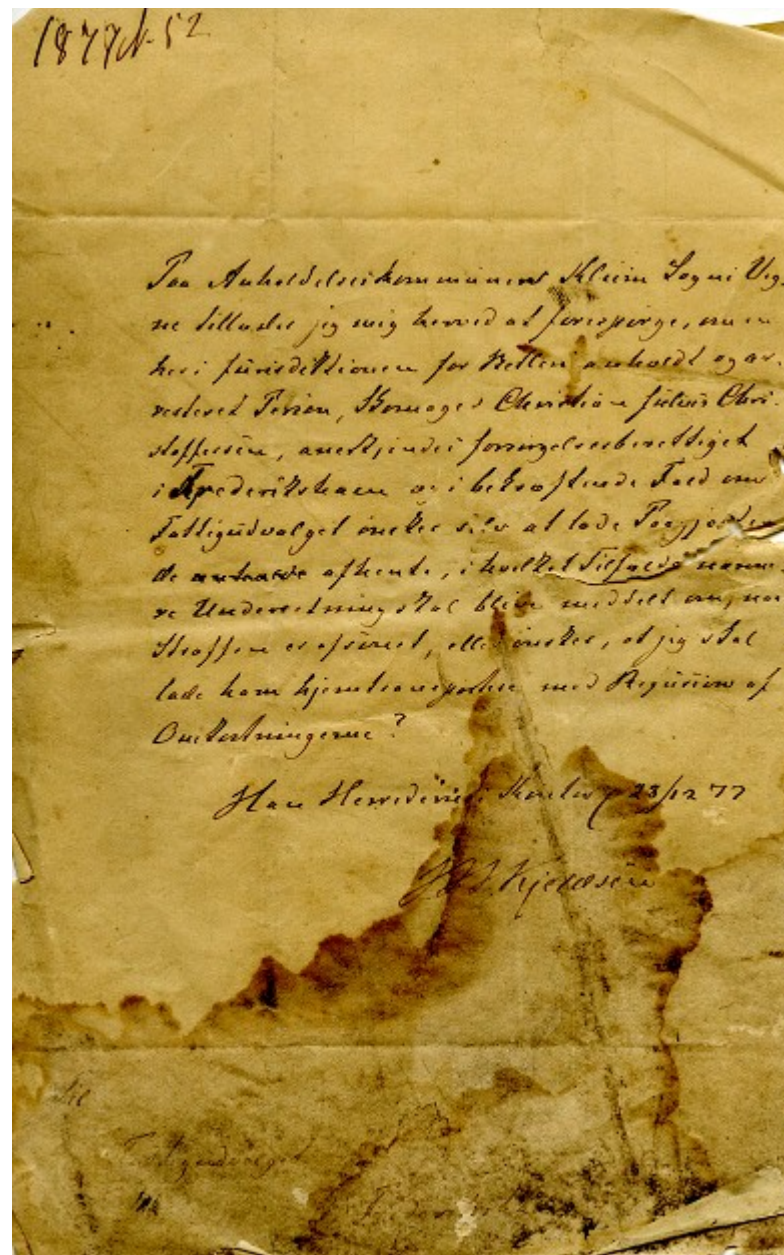 1877 N. 52
Paa Anholdelseskommunens Kleim Sogns Veg-
ne tillader jeg mig herved at forespørge, om en
her i Jurisdiktionen for Betleri anholdt og ar-
resteret Person, Skomager Christian Julius Chri-
stoffersen, anerkjendes forsørgelsesberettiget
i Frederikshavn og i bekræftende Fald om
Fattigudvalget ønsker selv at lade Paagjælden-
de afhente, i hvilket Tilfælde nærme-
re Underretning skal blive meddelt om, naar
Straffen er afsonet, eller ønsker, at jeg skal
lade ham hjemtransportere med Reqvisition af
Omkostningerne?
Han Herreders Kontor, 23/12 77
Kjeldsen
Til
Fattigudvalget